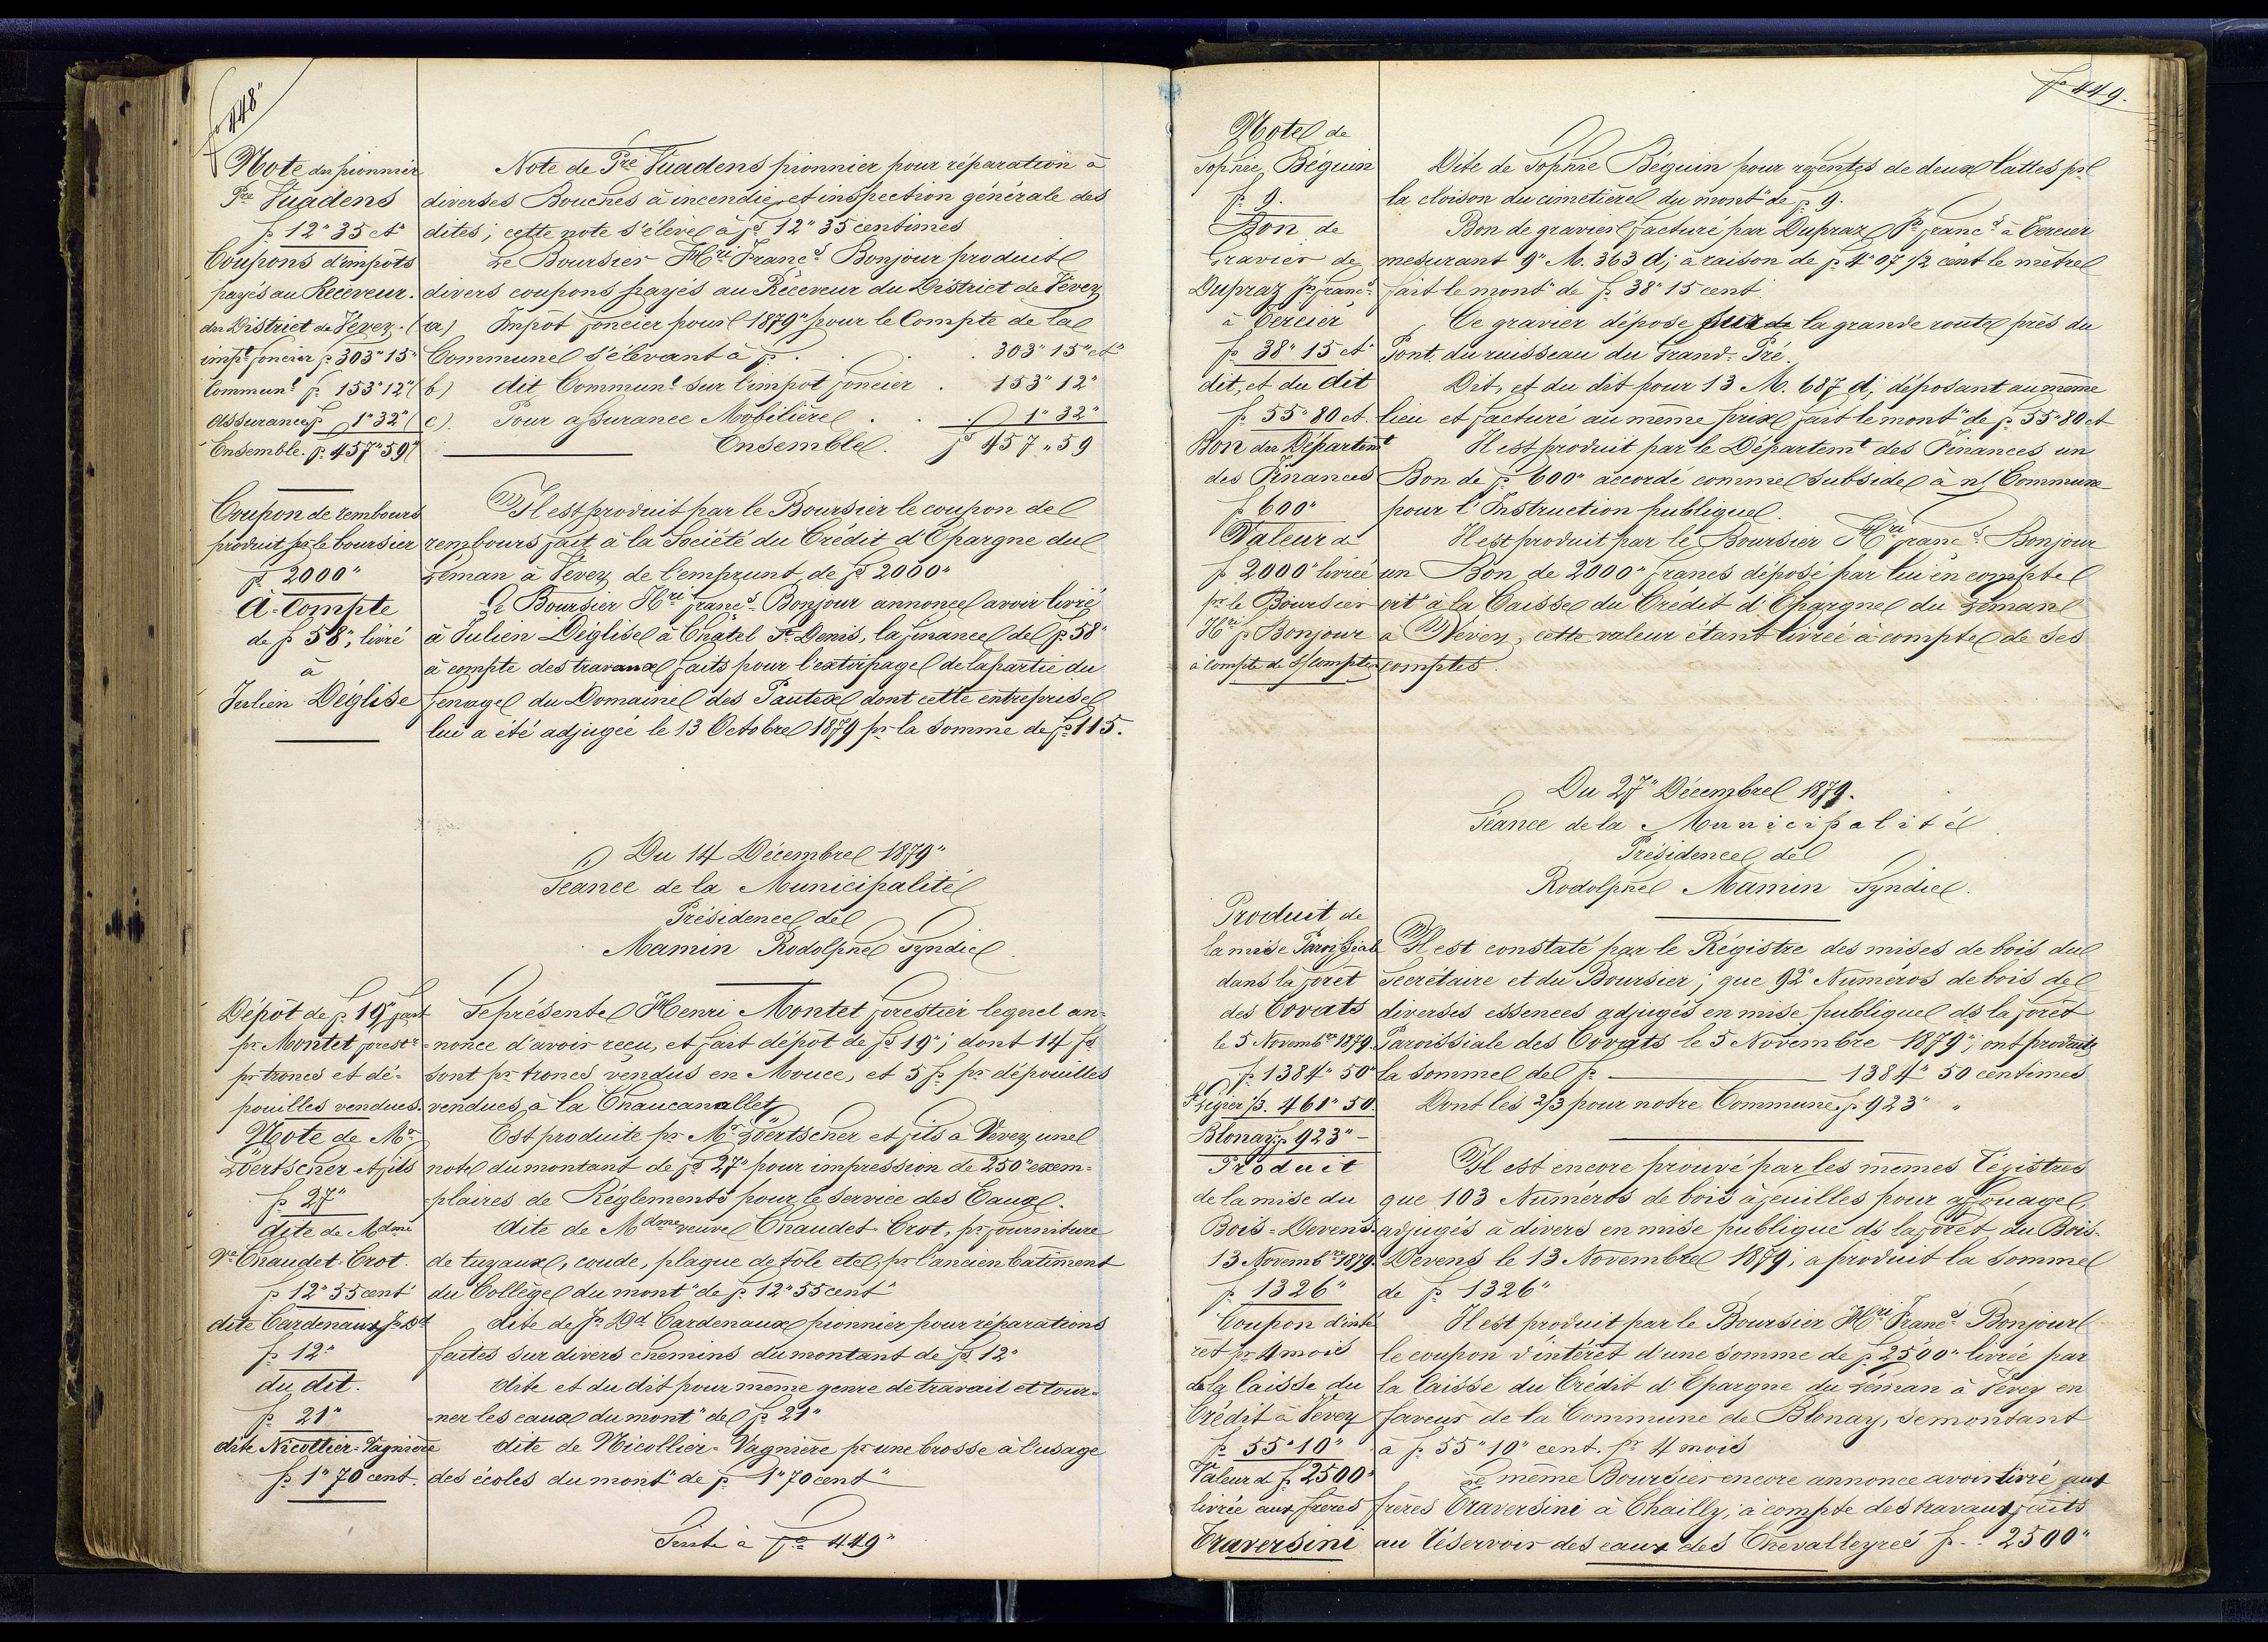 fo 448"
Note du pionnier
Pre Vuadens
fs 12" 35 ct"
Coupons d'impôts
payés au Receveur.
du District de Vevey. (
impt foncier fs 303" 15"
Communl fs 153" 12" (
Assurance fs 1" 32" (
Ensemble. fs 457" 59"
Note de Pre Vuadens pionnier pour réparation à
diverses Bouches à incendie, et inspection générale des
dites; cette note s'élève à fs 12" 35 centimes
Le Boursier Hri Francs Bonjour produit
divers coupons payés au Réceveur du District de Vevey
a) Impôt foncier pour 1879" pour le Compte de la
Commune s'élevant à fs . . . 303" 15" ct"
b) dit Communl sur l'impôt foncier . 153" 12"
c). Pour assurance Mobilière . . . 1" 32"
Ensemble. fs 457 " 59
Coupon de rembours
produit pr le boursier
fs 2000"
à-Compte
de fs 58", livré
à
Julien Déglise
Il est produit par le Boursier le coupon de
rembours fait à la Société du Crédit d'Epargne du
Léman à Vevey de l'emprunt de fs 2000"
Le Boursier Hri Francs Bonjour annonce avoir livré
à Julien Déglise à Châtel St Denis, la finance de fs 58"
à compte des travaux faits pour l'extirpage de la partie du
fenage du Domaine des Pautex dont cette entreprise
lui a été adjugée le 13 Octobre 1879 pr la somme de fs 115.
Du 14 Décembre 1879"
Séance de la Municipalité
Présidence de
Mamin Rodolphe Syndic
Dépôt de fs 19" fait
pr Montet forestr
pr troncs et dé-
pouilles vendues.
Note de Mr
Loertscher et fils
fs 27"
dite de Mdme
Ve Chaudet-Crot.
fs 12" 55 cent
dite Cardenaux Jn Dd
fs 12"
du dit.
fs 21"
dite Nicollier-Vagnière
fs 1" 70 cent.
Se présente Henri Montet forestier lequel an-
-nonce d'avoir reçu, et fait dépôt de fs 19"; dont 14 fs
sont pr troncs vendus en Mouce, et 5 fs pr dépouilles
vendues à la Chaucanallet
Est produite pr Mr Loertscher et fils à Vevey une
note du montant de fs 27" pour impression de 250" exem-
-plaires de Réglements pour le service des Eaux.
dite de Mdme veuve Chaudet-Crot, pr fourniture
de tuyaux, coude, plaque de tôle etc, pr l'ancien batiment
du Collège du mont" de fs 12" 55 cent"
dite de Jn Dd Cardenaux pionnier pour réparations
faites sur divers chemins du montant de fs 12"
dite et du dit pour même genre de travail et tour-
-ner les eaux du mont" de fs 21"
dite de Nicollier-Vagnière pr une brosse à l'usage
des écoles du mont" de fs 1" 70 cent"
Suite à fo 449"
fo 449.
Note de
Sophie Béguin
fs 9.
Bon de
Gravier de
Dupraz Jn francs
à Cercier
fs 38" 15 ct
dit, et du dit
fs 55" 80 ct.
Bon du Départemt
des Finances
fs 600"
Valeur de
fs 2000" livrée
pr le Boursier
Hri fs Bonjour
à compte de s/compte
Dite de Sophie Béguin pour refentes de deux lattes pr
la cloison du cimetière du mont" de fs 9.
Bon de gravier facturé par Dupraz Jn francs à Cercier
mesurant 9" M. 363 d; à raison de fs 4" 07 1/2 cent le mètre
fait le mont" de fs 38" 15 cent.
Ce gravier déposé sur la grande route près du
Pont du ruisseau du Grand-Pré.
Dit, et du dit pour 13 M. 687 d; déposant au même
lieu et facturé au même prix fait le mont" de fs 55" 80 ct
Il est produit par le Départemt des Finances un
Bon de fs 600" accordé comme subside à n/ Commune
pour l'Instruction publique.
Il est produit par le Boursier Hri francs Bonjour
un Bon de 2000" francs déposé par lui en compte
crt à la Caisse du Crédit d'Epargne du Léman
à Vevey, cette valeur étant livrée à compte de ses
comptes.
Du 27" Décembre 1879.
Séance de la Municipalité
Présidence de
Rodolphe Mamin Syndic.
Produit de
la mise Paroissiale
dans la forêt
des Covats
le 5 Novembre 1879.
fs 1384" 50"
St Légier 1/3. 461" 50.
Blonay fs 923" -
Produit
de la mise du
Bois-Devens
13 Novembre 1879.
fs 1326"
Coupon d'inté
rêt pr 4 mois
de la Caisse du
Crédit à Vevey
fs 55" 10"
Valeur de fs 2500"
livrée aux frères
Traversini
Il est constaté par le Régistre des mises de bois du
Secrétaire et du Boursier; que 92" Numéros de bois de
diverses essences adjugés en mise publique ds la forêt
Paroissiale des Covats le 5 Novembre 1879"; ont produit
la somme de fs 1384" 50 centimes
Dont les 2/3 pour notre Commune fs 923" "
Il est encore prouvé par les mêmes Régistres
que 103 Numéros de bois à feuilles pour affouage,
adjugés à divers en mise publique ds la forêt du Bois-
Devens le 13 Novembre 1879; a produit la somme
de fs 1326"
Il est produit par le Boursier Hri Francs Bonjour
le coupon d'intérêt d'une somme de fs 2500" livrée par
la Caisse du Crédit d'Epargne du Léman à Vevey en
faveur de la Commune de Blonay, se montant
à fs 55" 10" cent. pr 4 mois
Le même Boursier encore annonce avoir livré aux
frères Traversini à Chailly; à compte des travaux faits
au Réservoir des eaux des Chevalleyres fs - 2500"